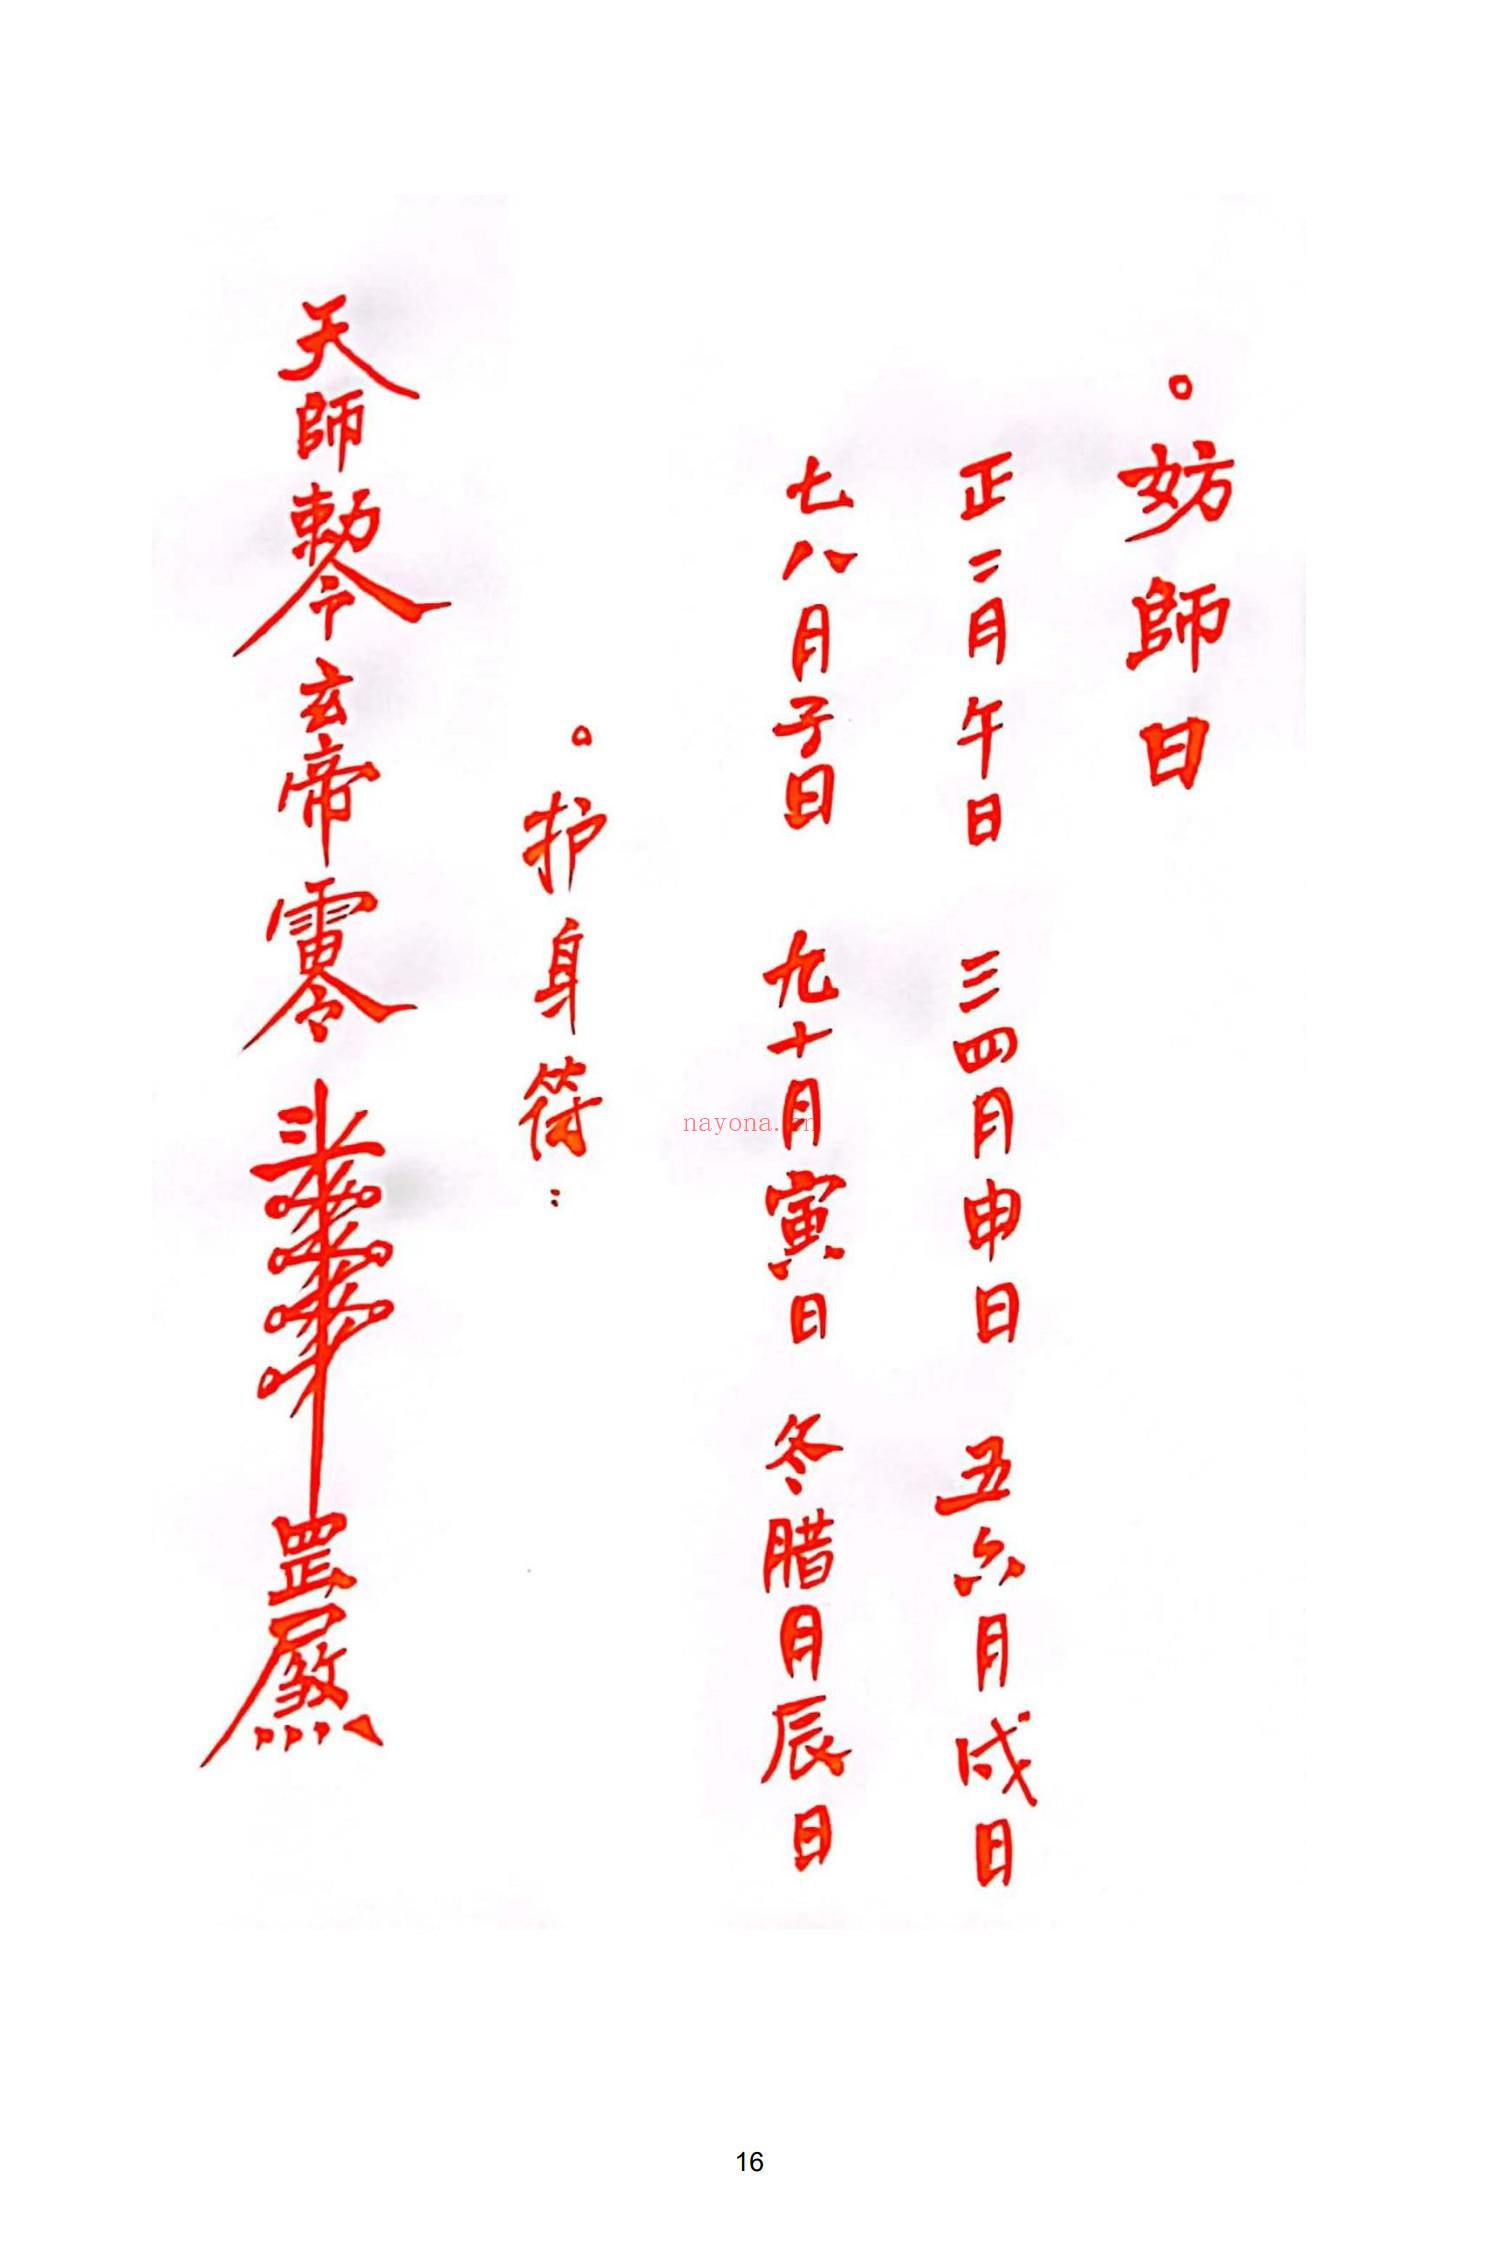 。妨師日
正二月午日 三四月申日 五六月戌日
七八月子日 九十月寅日 冬腊月辰日
。护身符：
天師勅令玄帝
罡
nayona.cn
16